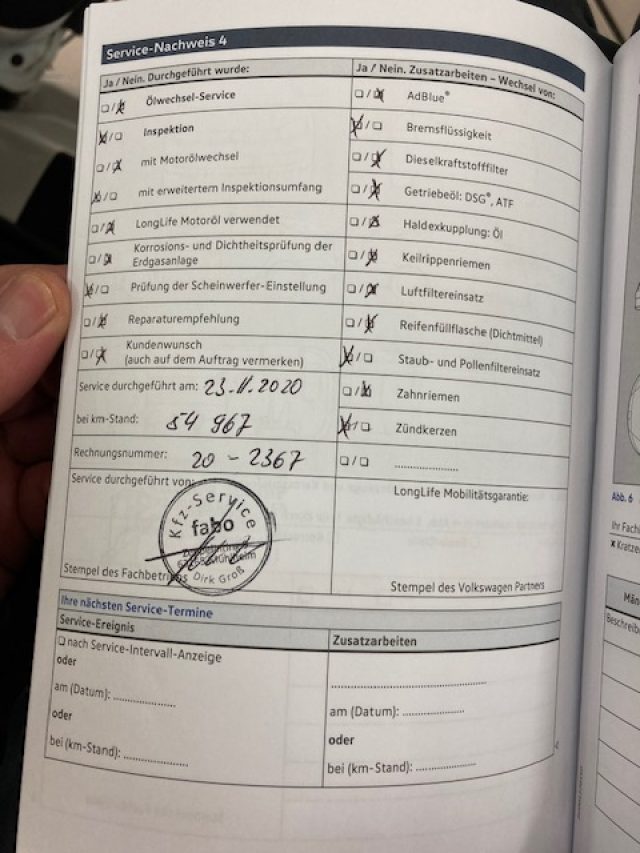 Service-Nachweis 4
Ja / Nein. Durchgeführt wurde:
❏ / ❏ Ölwechsel-Service
❏ / ❏ Inspektion
❏ / ❏ mit Motorölwechsel
❏ / ❏ mit erweitertem Inspektionsumfang
❏ / ❏ LongLife Motoröl verwendet
❏ / ❏ Korrosions- und Dichtheitsprüfung der
Erdgasanlage
❏ / ❏ Prüfung der Scheinwerfer-Einstellung
❏ / ❏ Reparaturempfehlung
❏ / ❏ Kundenwunsch
(auch auf dem Auftrag vermerken)
Service durchgeführt am: 23.11.2020
bei km-Stand: 54 967
Rechnungsnummer: 20 - 2367
Service durchgeführt von:
Kfz-Service
fabo
Dirk Groß
Stempel des Fachbetriebs
Ja / Nein. Zusatzarbeiten – Wechsel von:
❏ / ❏ AdBlue®
❏ / ❏ Bremsflüssigkeit
❏ / ❏ Dieselkraftstofffilter
❏ / ❏ Getriebeöl: DSG®, ATF
❏ / ❏ Haldexkupplung: Öl
❏ / ❏ Keilrippenriemen
❏ / ❏ Luftfiltereinsatz
❏ / ❏ Reifenfüllflasche (Dichtmittel)
❏ / ❏ Staub- und Pollenfiltereinsatz
❏ / ❏ Zahnriemen
❏ / ❏ Zündkerzen
❏ / ❏ ....................
LongLife Mobilitätsgarantie:
Stempel des Volkswagen Partners
Ihre nächsten Service-Termine
Service-Ereignis
❏ nach Service-Intervall-Anzeige
oder
am (Datum): ....................
oder
bei (km-Stand): ....................
Zusatzarbeiten
..................................................
am (Datum): ....................
oder
bei (km-Stand): ....................
Abb. 6
Ihr Fach
x Kratze
Män
Beschreib